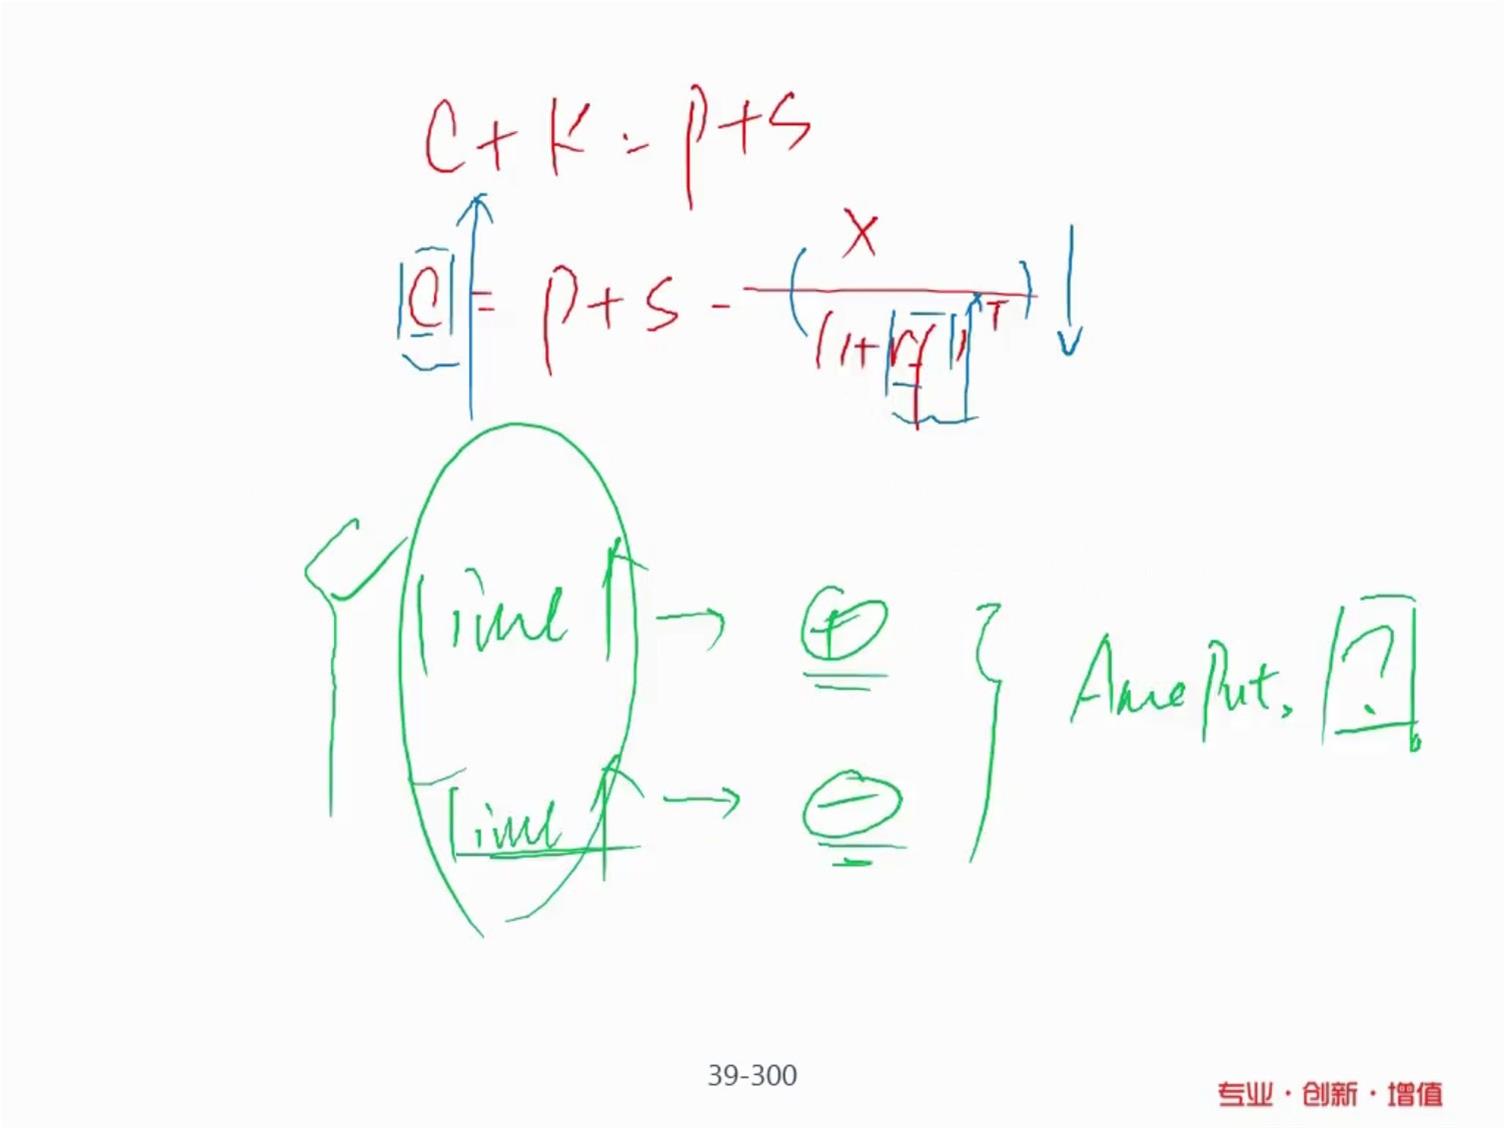 C + K = P + S
C = P + S - X / (1 + rf)^T
Time ↑ → ⊕
Time ↑ → ⊖
Ame Put, ?
39-300
专业·创新·增值